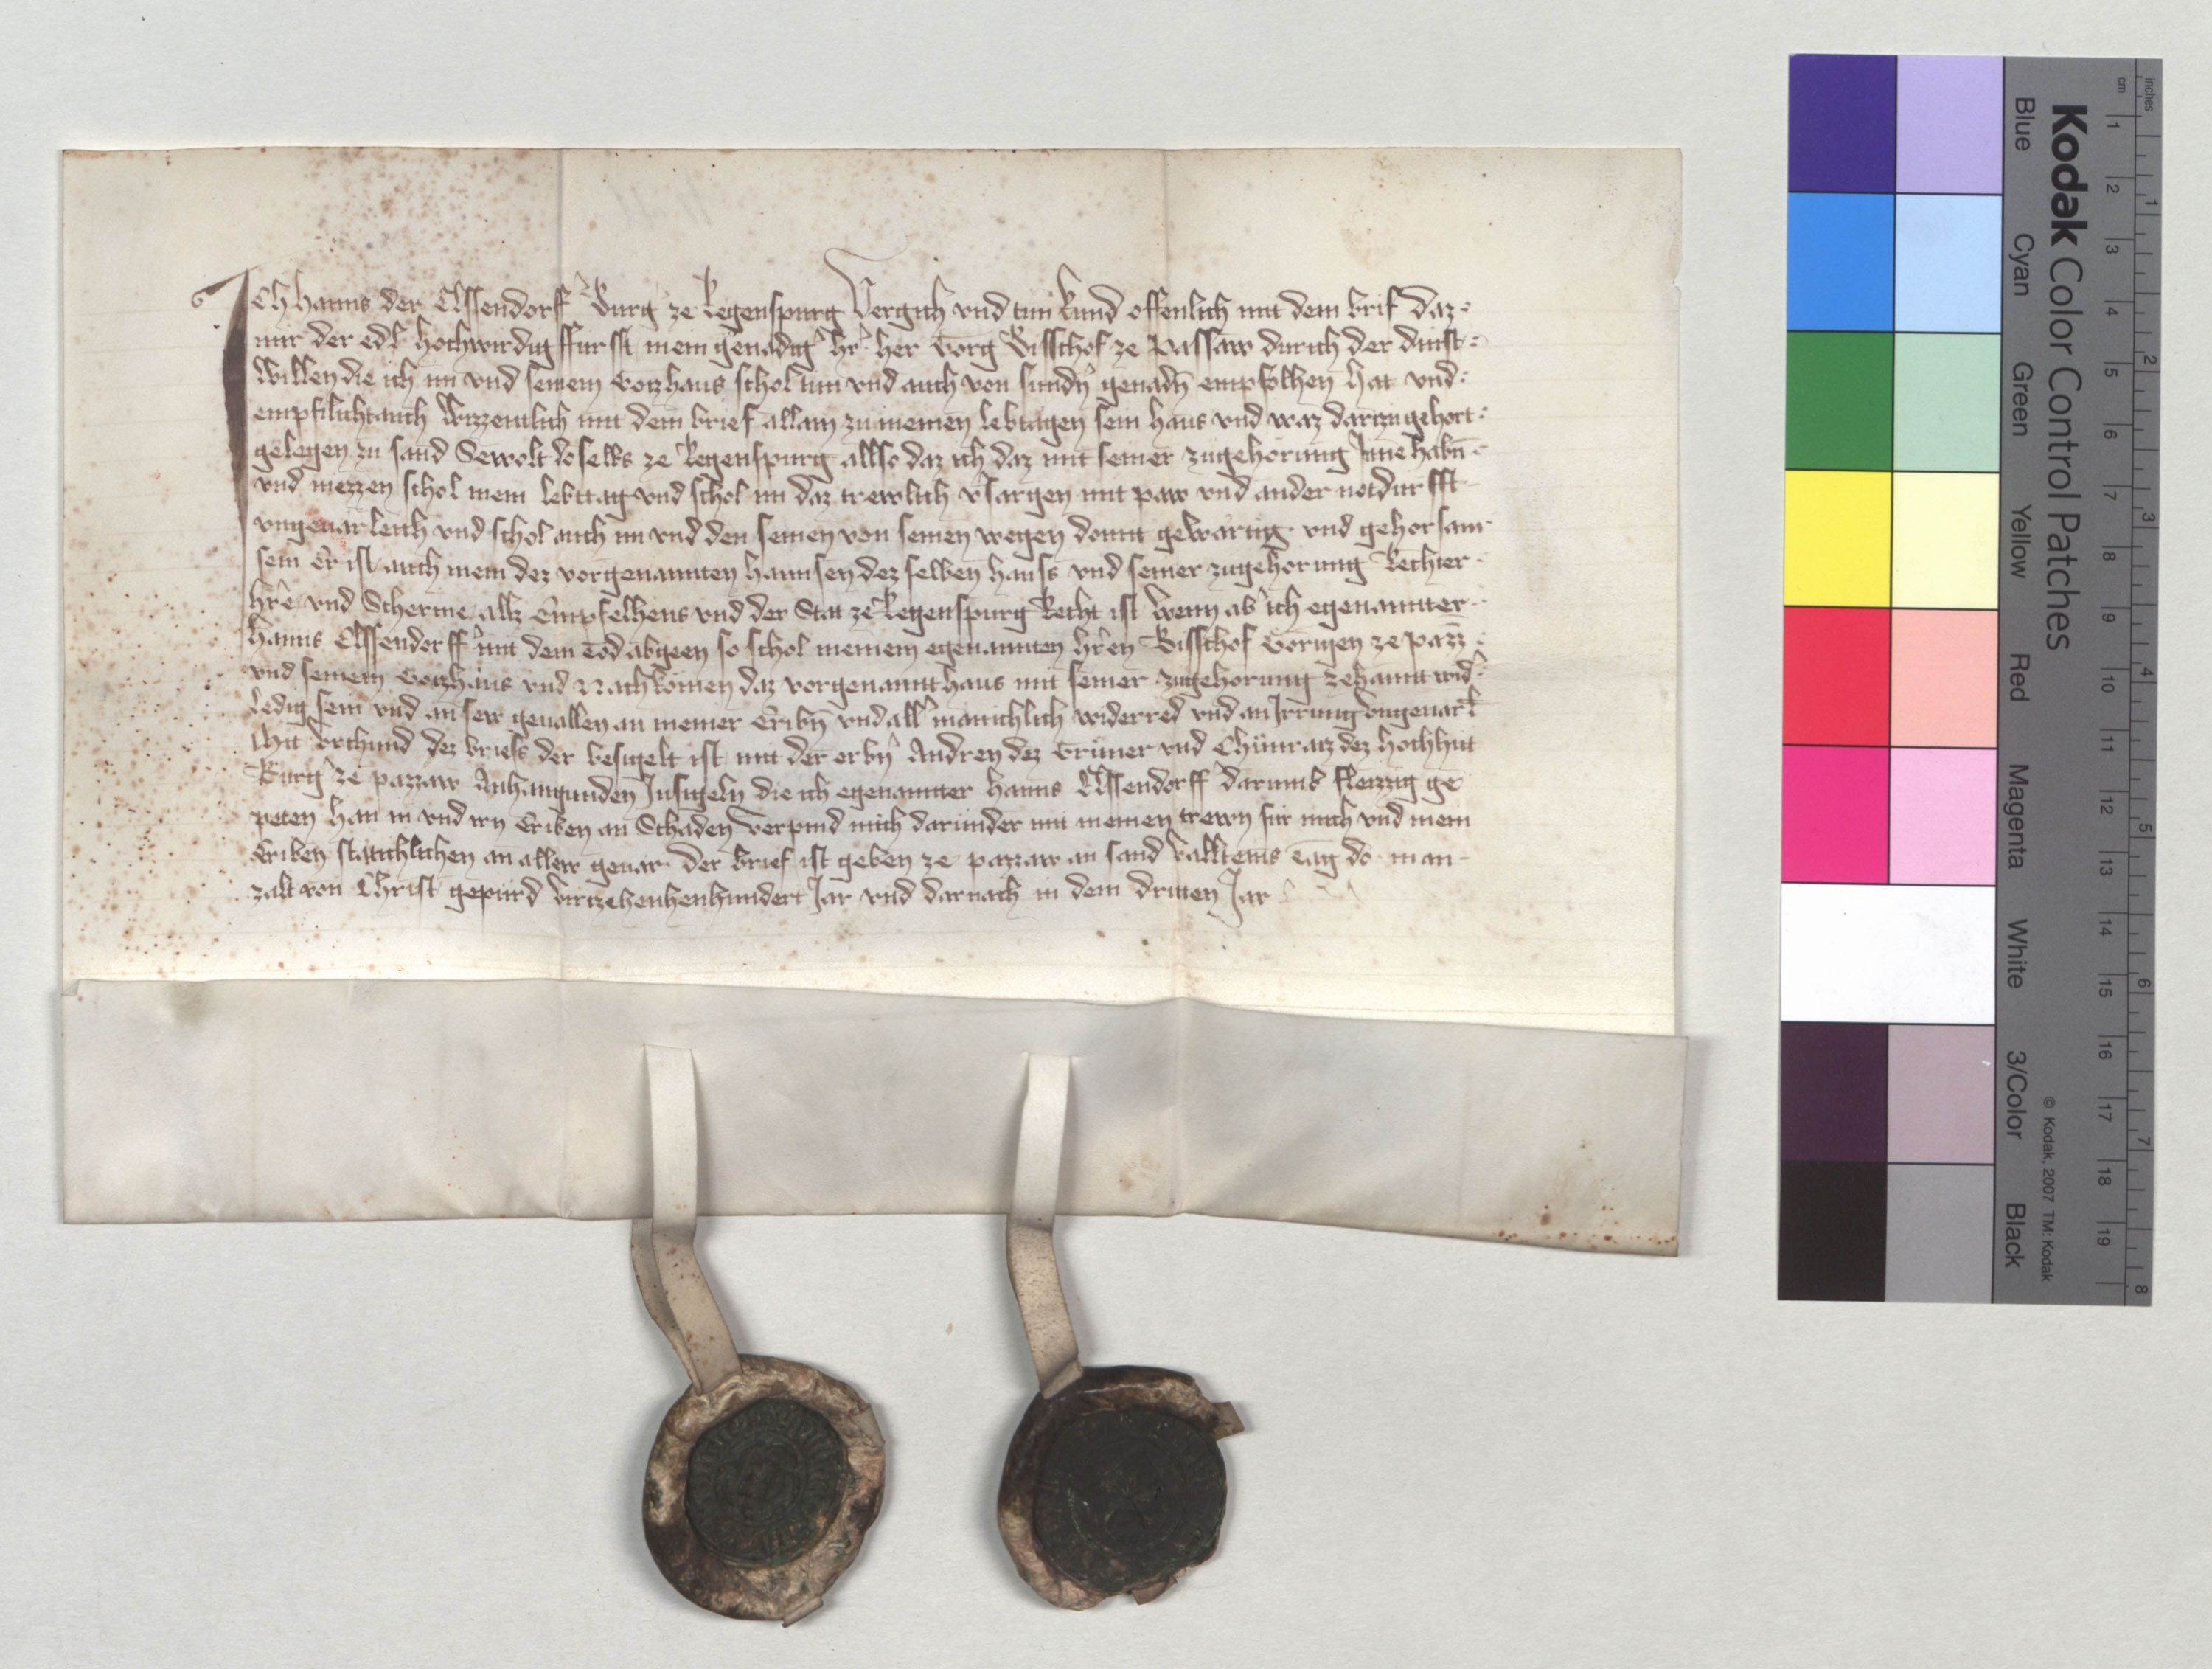 Ich Hanns der Elssendorff(er) Burg(er) ze Regenspurg Vergich vnd tun kund offenlich mit dem brif daz
mir der edl hochwirdig ffürst mein genädig(er) h(er)r her Görg Bisschof ze Passaw durich der dinst
Willen die ich im vnd seinem Gotzhaus schol tun vnd auch von sundn genadn empfolhen hat vnd
empfilicht auch Wizzentlich mit dem brief allain zu meinen lebtagen sein haus vnd waz darzu gehort
gelegen zu sand Sewolt doselbs ze Regenspurg allso daz ich daz mit seiner zugehörung Inne habn
vnd niezzen schol mein lebttag vnd schol im daz trewlich v(er)sargen mit paw vnd ander notdurfft
vngeuarleich vnd schol auch im vnd den seinen von seinen wegen domit gewärtig vnd gehorsam
sein Er ist auch mein dez vorgenannten Hannsen dez selben hauss vnd seiner zugehorung Rechter
h(er)re vnd Scherme allz Empfelhens vnd der Stat ze Regenspurg Recht ist Wenn ab(er) ich egenannter
Hanns Elssendorff(er) mit dem Tod abgeen so schol meinem egenannten h(er)ren Bisschof Görigen ze pazz
vnd seinem Gotzhaus vnd Nachkomen daz vorgenannt haus mit seiner zugehorung zehannt wid(er)
Ledig sein vnd an sew geuallen an meiner Eribn vnd all(er) mänichlich widerred vnd an Irrung vngeuarl
Mit Vrchund dez briefs der besigelt ist mit der erbn Andren dez Grüner vnd Chünratz dez Hochhut
Burg(er) ze pazzaw Anhangunden Insigeln die ich egenannter Hanns Elssendorff(er) darumb fleizzig ge
peten han in vnd irn Eriben an Schaden Verpind mich darunder mit meinen trewn für mich vnd mein
Eriben stätichlichen an allew geuar der brief ist geben ze pazzaw an sand Valltems Tag do man
zalt von Christ gepürd Virczehenhenhundert Jar vnd darnach in dem dritten Jar
Kodak Color Control Patches
Blue Cyan Green Yellow Red Magenta White 3/Color Black
© Kodak, 2007 TM: Kodak
cm 1 2 3 4 5 6 7 8 9 10 11 12 13 14 15 16 17 18 19
inches 1 2 3 4 5 6 7 8